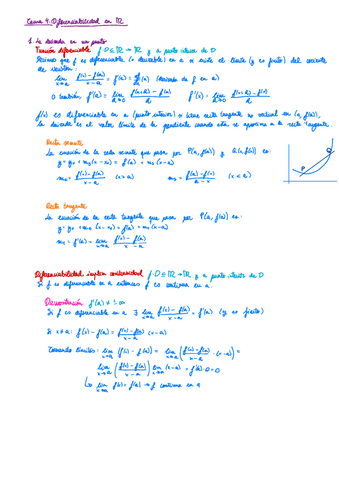 Tema 4: Diferenciabilidad en ℝ
1. La derivada en un punto
Función diferenciable f: D ⊆ ℝ → ℝ y a punto interior de D
Decimos que f es diferenciable (o derivable) en a si existe el límite (y es finito) del cociente
de Newton:
lim x→a (f(x) − f(a))/(x − a) = f'(a) = df/dx (a) (derivada de f en a)
O también, f'(a) = lim h→0 (f(a+h) − f(a))/h f'(x) = lim h→0 (f(x+h) − f(x))/h
f(x) es diferenciable en a (punto interior) si tiene recta tangente no vertical en (a, f(a)),
la derivada es el valor límite de la pendiente cuando esta se aproxima a la recta tangente.
Recta secante
La ecuación de la recta secante que pasa por P(a, f(a)) y Q(x, f(x)) es:
y = y₀ + mₛ(x − x₀) = f(a) + mₛ(x − a)
mₛ = (f(x) − f(a))/(x − a) (x > a) mₛ = (f(a) − f(x))/(a − x) (x < a)
P
Q
Recta tangente
La ecuación de la recta tangente que pasa por P(a, f(a)) es:
y = y₀ + mₜ(x − x₀) = f(a) + mₜ(x − a)
mₜ = f'(a) = lim x→a (f(x) − f(a))/(x − a)
Diferenciabilidad implica continuidad f: D ⊆ ℝ → ℝ y a punto interior de D
Si f es diferenciable en a entonces f es continua en a.
Demostración f'(a) ≠ ±∞
Si f es diferenciable en a ∃ lim x→a (f(x) − f(a))/(x − a) = f'(a) (y es finito)
Si x ≠ a: f(x) − f(a) = (f(x) − f(a))/(x − a) (x − a)
Tomando límites: lim x→a (f(x) − f(a)) = lim x→a ((f(x) − f(a))/(x − a) · (x − a)) =
lim x→a ((f(x) − f(a))/(x − a)) lim x→a (x − a) = f'(a) · 0 = 0
↳ lim x→a f(x) = f(a) → f continua en a